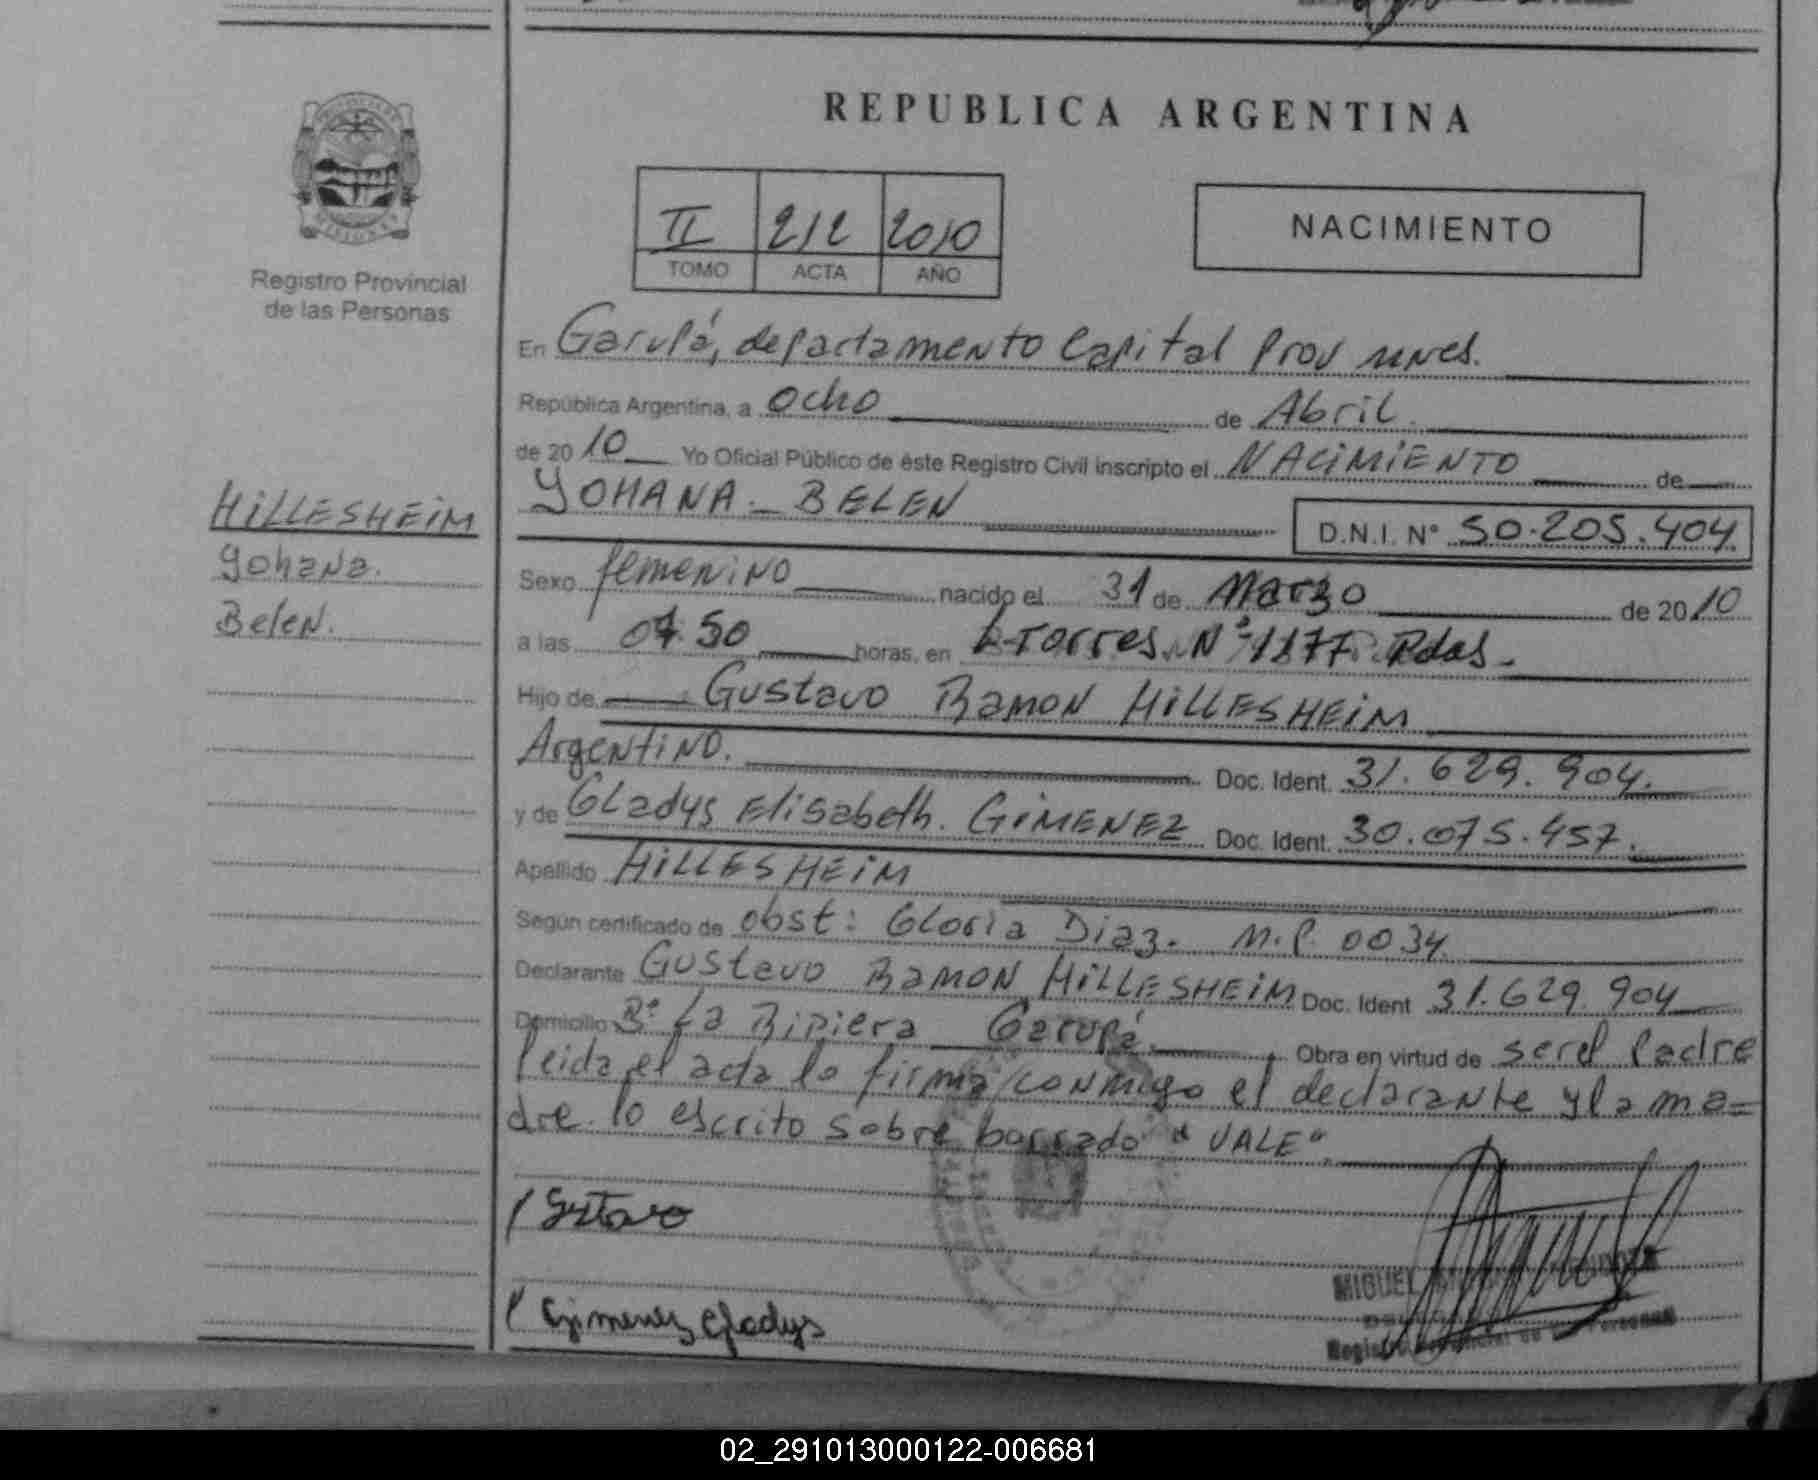 REPUBLICA ARGENTINA
PROVINCIA DE
MISIONES
Registro Provincial
de las Personas
II 212 2010
TOMO ACTA AÑO
NACIMIENTO
En Garupá, departamento Capital Prov mnes.
República Argentina, a ocho de Abril.
de 2010 Yo Oficial Público de éste Registro Civil inscripto el NACIMIENTO de
HILLESHEIM
Yohana.
Belen.
YOHANA - BELEN D.N.I. N° 50.205.404
Sexo femenino nacido el 31 de Marzo de 2010
a las 07.50 horas, en L. Torres N° 1177 Pdas.
Hijo de Gustavo Ramon HILLESHEIM
Argentino. Doc. Ident. 31.629.904.
y de Gladys Elisabeth. GIMENEZ Doc. Ident. 30.075.457.
Apellido HILLESHEIM
Según certificado de obst: Gloria Diaz. M.P. 0034.
Declarante Gustavo Ramon HILLESHEIM Doc. Ident 31.629.904
Domicilio B° La Ripiera Garupá. Obra en virtud de ser el Padre
leida el acta la firma conmigo el declarante y la ma=
dre. lo escrito sobre borrado "VALE".
Gustavo
MIGUEL
Gimenez Gladys
de las Personas
02_291013000122-006681